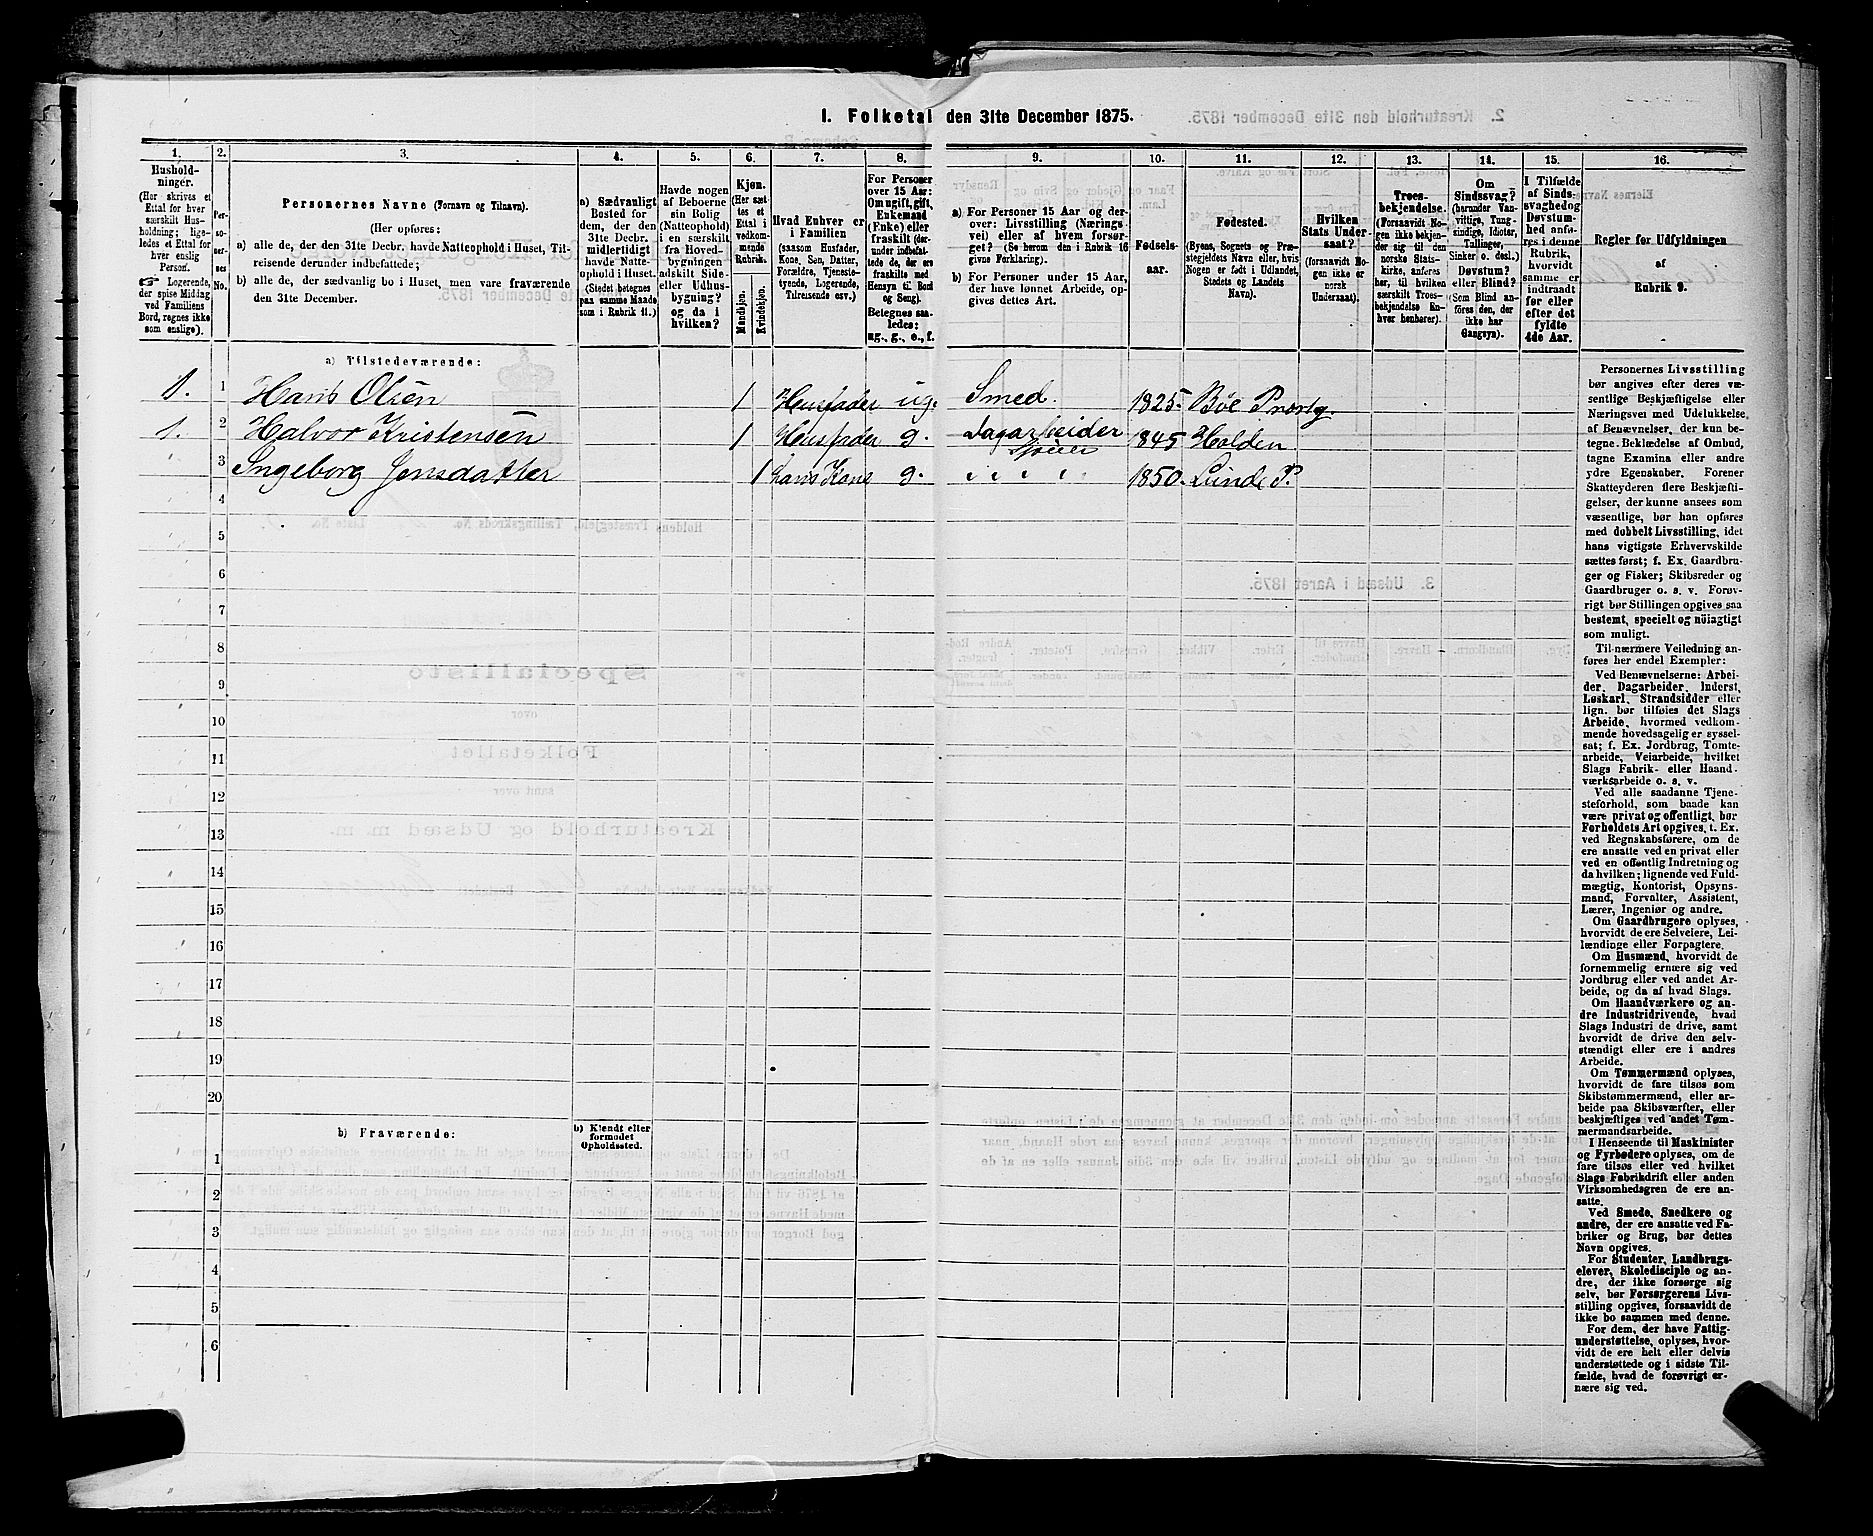 1. Folketal den 31te December 1875.
1. 2. 3. 4. 5. 6. 7. 8. 9. 10. 11. 12. 13. 14. 15. 16.
Hushold-
ninger.
(Her skrives et
Ettal for hver
særskilt Hus-
holdning; lige-
ledes et Ettal for
hver enslig
Person.
Logerende,
der spise Middag
ved Familiens
Bord, regnes ikke
som enslige).
Per-
so-
ner-
nes
No.
Personernes Navne (Fornavn og Tilnavn).
(Her opføres:
a) alle de, der den 31te Decbr. havde Natteophold i Huset, Til-
reisende derunder indbefattede;
b) alle de, der sædvanlig bo i Huset, men vare fraværende
den 31te December.
a) Sædvanligt
Bosted for
dem, der den
31te Decbr.
midlertidigt
havde Natte-
ophold i Huset.
(Stedet betegnes
paa samme Maade
som i Rubrik 11.)
Havde nogen
af Beboerne
sin Bolig
(Natteophold)
i en særskilt
fra Hoved-
bygningen
adskilt Side-
eller Udhus-
bygning?
og da i
hvilken?
Kjøn.
(Her sæt-
tes et
Ettal i
vedkom-
mende
Rubrik.
Mandkjøn.
Kvindekjøn.
Hvad Enhver er
i Familien
(saasom Husfader,
Kone, Søn, Datter,
Forældre, Tjeneste-
tyende, Logerende,
Tilreisende osv.)
For Personer
over 15 Aar:
Om ugift, gift,
Enkemand
(Enke) eller
fraskilt (der-
under indbefat-
tede de, der ere
fraskilte med
Hensyn til Bord
og Seng).
Betegnes saa-
ledes:
ug., g., e., f.
a) For Personer 15 Aar og der-
over: Livsstilling (Nærings-
vei) eller af hvem forsør-
get? (Se herom den i Rubrik 16
givne Forklaring).
b) For Personer under 15 Aar,
der have lønnet Arbeide, op-
gives dettes Art.
Fødsels-
aar.
Fødested.
(Byens, Sognets og Præ-
stegjeldets Navn eller, hvis
Nogen er født i Udlandet,
Stedets og Landets
Navn).
Hvilken
Stats Under-
saat?
(forsaavidt No-
gen ikke er
norsk
Undersaat).
Troes-
bekjendelse.
(Forsaavidt No-
gen ikke bekjen-
der sig til den
norske Stats-
kirke, anføres
her, til hvilken
særskilt Troes-
bekjendelse En-
hver henhører).
Om
Sindssvag?
(herunder Van-
vittige, Tung-
sindige, Idioter,
Tullinger,
Sinker o. desl.)
Døvstum?
eller Blind?
(Som Blind an-
føres den, der
ikke har
Gangsyn).
I Tilfælde
af Sinds-
svaghed og
Døvstum-
hed anfø-
res i denne
Rubrik,
hvorvidt
samme er
indtraadt
før eller
efter det
fyldte
4de Aar.
Regler for Udfyldningen
af
Rubrik 9.
a) Tilstedeværende:
1. 1 Hans Olsen 1 Husfader ug. Smed. 1825. Bøe Prestg.
1. 2 Halvor Kristensen 1 Husfader g. Dagarbeider 1845 Holden
3 Ingeborg Jensdatter 1 hans Kone g. " " " " 1850. Lunde P.
4
5
6
7
8
9
10
11
12
13
14
15
16
17
18
19
20
b) Fraværende:
b) Kjendt eller
formodet
Opholdssted.
1
2
3
4
5
6
Personernes Livsstilling
bør angives efter deres væ-
sentlige Beskjæftigelse eller
Næringsvei med Udelukkelse
af Benævnelser, der kun be-
tegne Beklædelse af Ombud,
tagne Examina eller andre
ydre Egenskaber. Forener
Skatteyderen flere Beskjæfti-
gelser, der kunne ansees som
væsentlige, bør han opføres
med dobbelt Livsstilling, idet
hans vigtigste Erhvervskilde
sættes først; f. Ex. Gaardbru-
ger og Fisker; Skibsreder og
Gaardbruger o. s. v. Forøv-
rigt bør Stillingen opgives saa
bestemt, specielt og nøiagtigt
som muligt.
Til nærmere Veiledning an-
føres her endel Exempler:
Ved Benævnelserne: Arbei-
der, Dagarbeider, Inderst,
Løskarl, Strandsidder eller
lign. bør tilføies det Slags
Arbeide, hvormed vedkom-
mende hovedsagelig er syssel-
sat; f. Ex. Jordbrug, Tomte-
arbeide, Veiarbeide, hvilket
Slags Fabrik- eller Haand-
værksarbeide o. s. v.
Ved alle saadanne Tjene-
steforhold, som baade kan
være privat og offentligt, bør
Forholdets Art opgives, t. Ex.
ved Regnskabsførere, om de
ere ansatte ved en privat eller
ved en offentlig Indretning og
da hvilken; lignende ved Fuld-
mægtig, Kontorist, Opsyns-
mand, Forvalter, Assistent,
Lærer, Ingeniør og andre.
Om Gaardbrugere oplyses,
hvorvidt de ere Selveiere, Lei-
lændinge eller Forpagtere.
Om Husmænd, hvorvidt de
fornemmelig ernære sig ved
Jordbrug eller ved andet Ar-
beide, og da af hvad Slags.
Om Haandværkere og an-
dre Industridrivende, hvad
Slags Industri de drive, samt
hvorvidt de drive den selv-
stændigt eller ere i andres
Arbeide.
Om Tømmermænd oplyses,
hvorvidt de fare tilsøs som
Skibstømmermænd, eller ar-
beide paa Skibsværfter, eller
beskjæftiges ved andet Tøm-
mermandsarbeide.
I Henseende til Maskinister
og Fyrbødere oplyses, om de
fare tilsøs eller ved hvilket
Slags Fabrikdrift eller anden
Virksomhedsgren de ere an-
satte.
Ved Smede, Snedkere og
andre, der ere ansatte ved Fa-
briker og Brug, bør dettes
Navn opgives.
For Studenter, Landbrugs-
elever, Skoledisciple og an-
dre, der ikke forsørge sig
selv, bør Forsørgerens Livs-
stilling opgives, forsaavidt de
ikke bo sammen med denne.
For dem, der have Fattig-
understøttelse, oplyses, hvor-
vidt de ere helt eller delvis
understøttede og i sidste Til-
fælde, hvad de forøvrigt er-
nære sig ved.